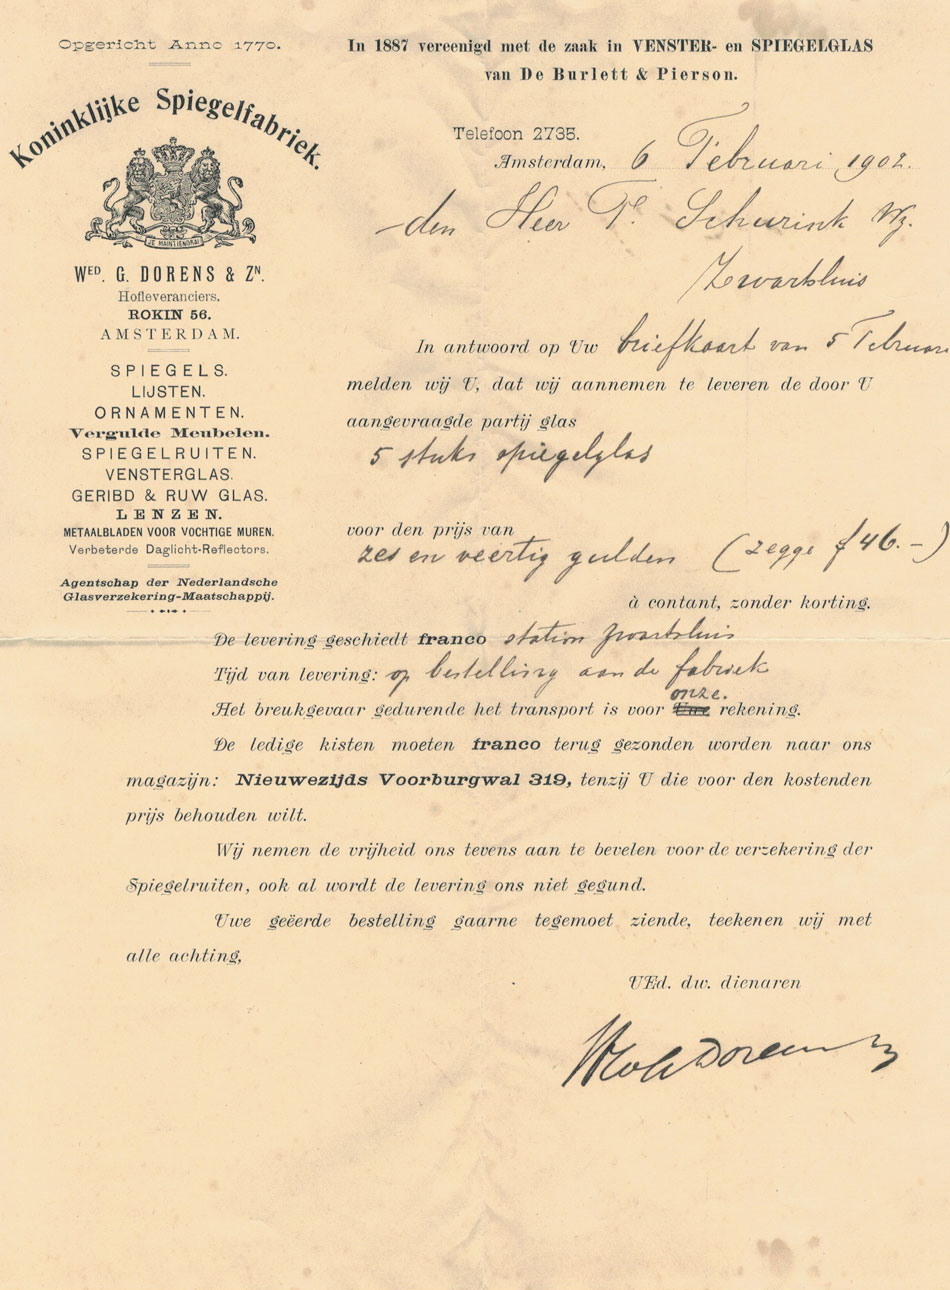 Opgericht Anno 1770.
Koninklijke Spiegelfabriek.
JE MAINTIENDRAI
WED. G. DORENS & ZN.
Hofleveranciers.
ROKIN 56.
AMSTERDAM.
SPIEGELS.
LIJSTEN.
ORNAMENTEN.
Vergulde Meubelen.
SPIEGELRUITEN.
VENSTERGLAS.
GERIBD & RUW GLAS.
LENZEN.
METAALBLADEN VOOR VOCHTIGE MUREN.
Verbeterde Daglicht-Reflectors.
Agentschap der Nederlandsche
Glasverzekering-Maatschappij.
In 1887 vereenigd met de zaak in VENSTER- en SPIEGELGLAS
van De Burlett & Pierson.
Telefoon 2735.
Amsterdam, 6 Februari 1902.
den Heer Schurink Wz.
Zwartsluis
In antwoord op Uw briefkaart van 5 Februari
melden wij U, dat wij aannemen te leveren de door U
aangevraagde partij glas
5 stuks spiegelglas
voor den prijs van
zes en veertig gulden (zegge f 46.-)
à contant, zonder korting.
De levering geschiedt franco station Zwartsluis
Tijd van levering: op bestelling aan de fabriek
onze.
Het breukgevaar gedurende het transport is voor Uwe rekening.
De ledige kisten moeten franco terug gezonden worden naar ons
magazijn: Nieuwezijds Voorburgwal 319, tenzij U die voor den kostenden
prijs behouden wilt.
Wij nemen de vrijheid ons tevens aan te bevelen voor de verzekering der
Spiegelruiten, ook al wordt de levering ons niet gegund.
Uwe geëerde bestelling gaarne tegemoet ziende, teekenen wij met
alle achting,
UEd. dw. dienaren
Wed G Dorens Zn